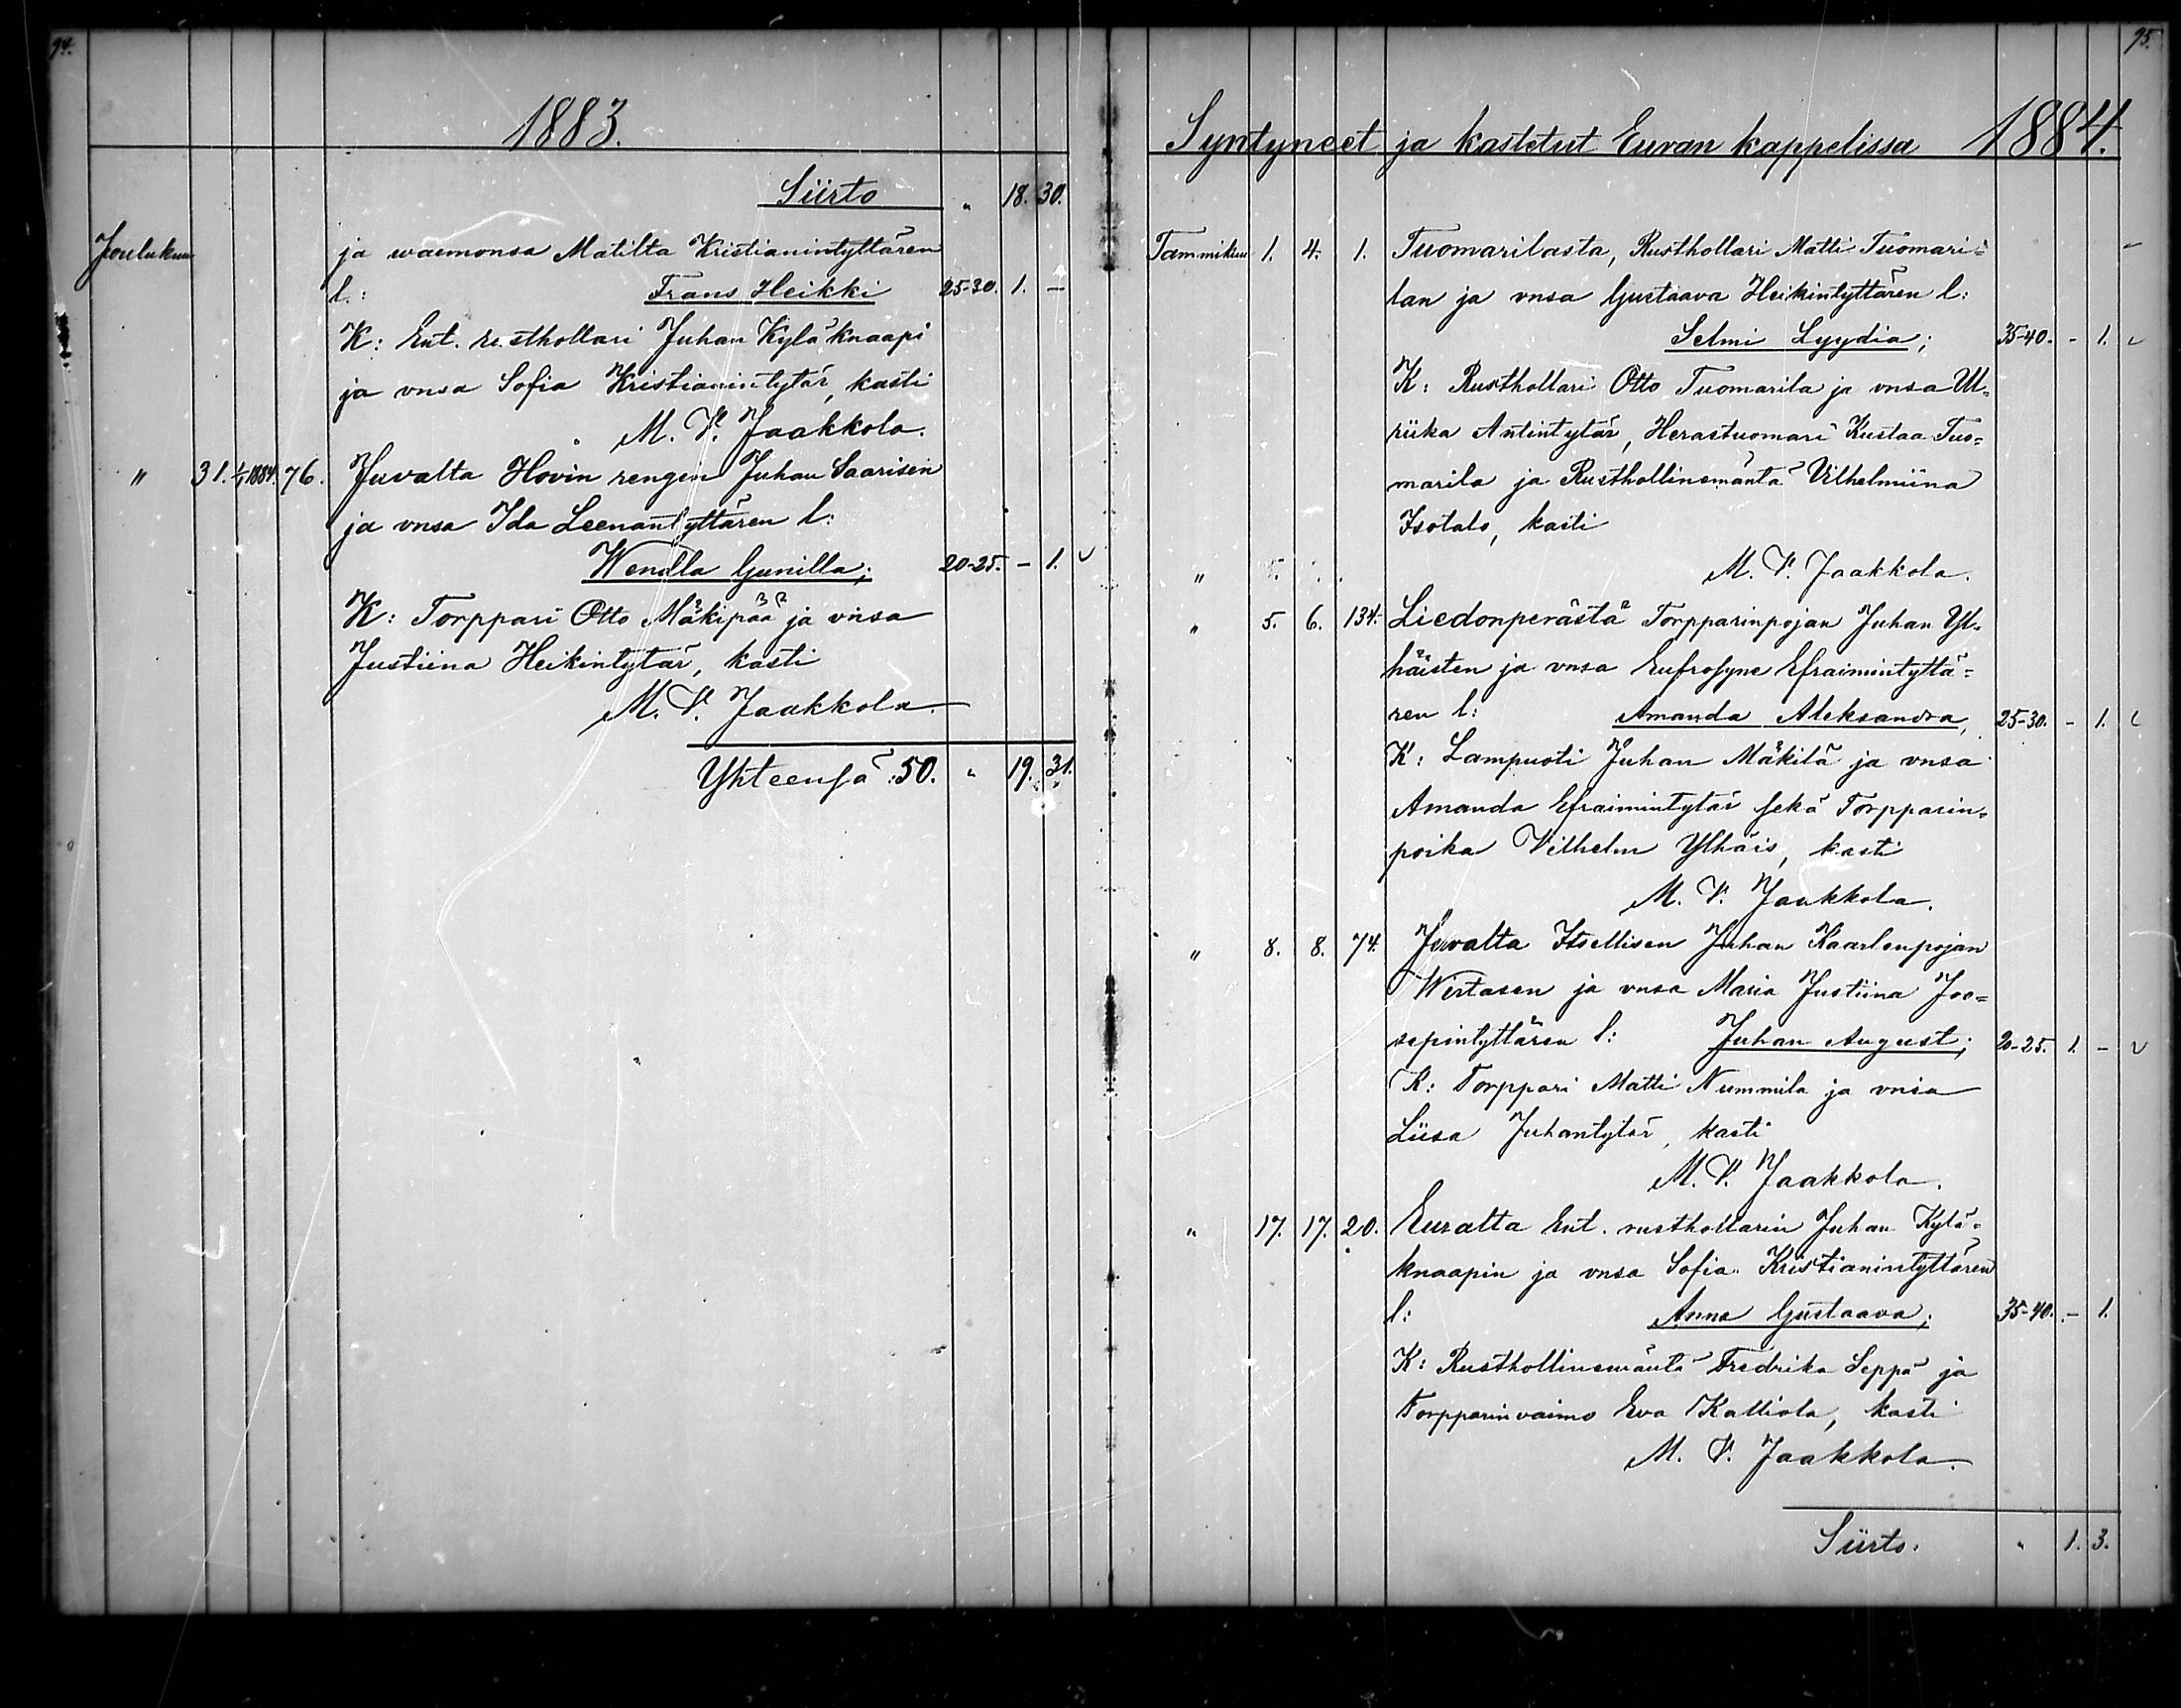 94.
1883.
Siirto " 18. 30.
Joulukuu ja waemonsa Matilta Kristianintyttären
l.: Frans Heikki 25-30. 1. –
K: Ent. rusthollari Juhan Kyläknaapi
ja vnsa Sofia Kristianintytär, kasti
M. V. Jaakkola.
" 31. 1/1 1884. 76. Juvalta Hovin rengin Juhan Saarisen
ja vnsa Ida Leenantyttären l:
Wendla Gunilla; 20-25. – 1.
K: Torppari Otto Mäkipää ja vnsa
Justiina Heikintytär, kasti
M. V. Jaakkola.
Yhteensä: 50. " 19. 31.
95.
Syntyneet ja kastetut Euran kappelissa 1884.
Tammikuu 1. 4. 1. Tuomarilasta, Rusthollari Matti Tuomari=
lan ja vnsa Gustaava Heikintyttären l:
Selmi Lyydia; 35-40. – 1.
K: Rusthollari Otto Tuomarila ja vnsa Ul=
riika Antintytär, Herastuomari Kustaa Tuo=
marila ja Rusthollinemäntä Vilhelmiina
Isotalo, kasti
M. V. Jaakkola.
" 5. 6. 134. Liedonperästä Torpparinpojan Juhan Yl=
häisten ja vnsa Eufrosyne Efraimintyttä=
ren l: Amanda Aleksandra, 25-30. – 1.
K: Lampuoti Juhan Mäkilä ja vnsa
Amanda Efraimintytär sekä Torpparin=
poika Vilhelm Ylhäis, kasti
M. V. Jaakkola.
" 8. 8. 74. Juvalta Itsellisen Juhan Kaarlenpojan
Wirtasen ja vnsa Maria Justiina Joo=
sepintyttären l: Juhan August; 20-25. 1. –
K: Torppari Matti Nummila ja vnsa
Liisa Juhantytär, kasti
M. V. Jaakkola.
" 17. 17. 20. Euralta Ent. rusthollarin Juhan Kylä=
knaapin ja vnsa Sofia Kristianintyttären
l: Anna Gustaava; 35-40. – 1.
K: Rusthollinemäntä Fredrika Seppä ja
Torpparinvaimo Eva Kalliola, kasti
M. V. Jaakkola.
Siirto. " 1. 3.